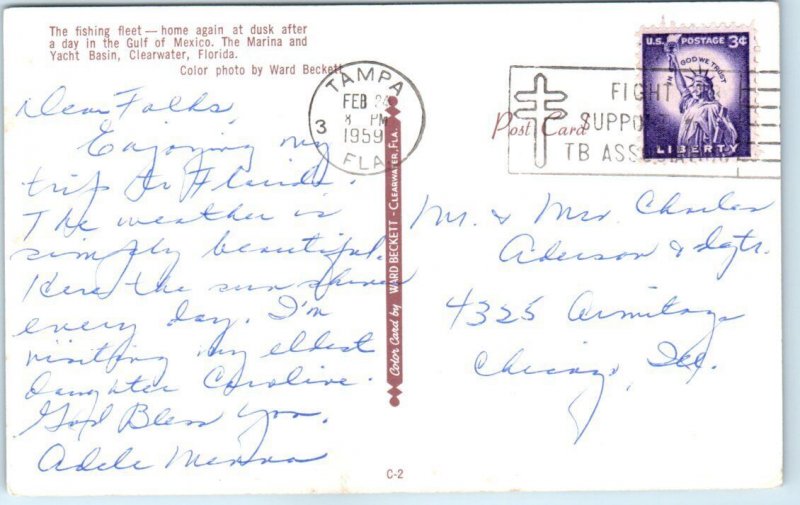 The fishing fleet — home again at dusk after
a day in the Gulf of Mexico. The Marina and
Yacht Basin, Clearwater, Florida.
Color photo by Ward Beckett
Dear Folks,
Enjoying my
trip to Florida.
The weather is
simply beautiful.
Here the sun shines
every day. I'm
visiting my eldest
daughter Caroline.
God Bless You.
Adele
TAMPA
FEB 24
8 PM
1959
FLA.
3
Color Card by WARD BECKETT - CLEARWATER, FLA.
Post Card
FIGHT
SUPPO
TB ASS
U.S. POSTAGE 3¢
IN GOD WE TRUST
LIBERTY
Mr. & Mrs. Charles
Aderson & dgtr.
4325 Armitage
Chicago, Ill.
C-2